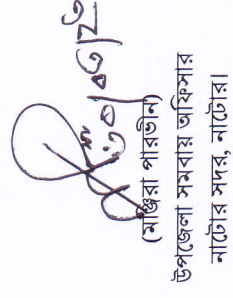 (মাঞ্জিরা পারভীন)
উপজেলা সমবায় অফিসার
নাটোর সদর, নাটোর।